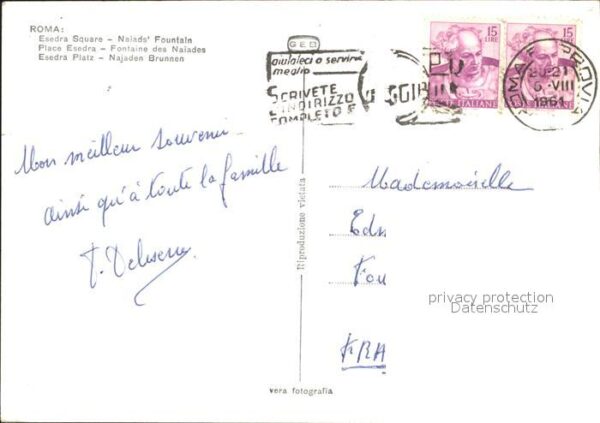 ROMA:
Esedra Square – Naiads' Fountain
Place Esedra – Fontaine des Naiades
Esedra Platz – Najaden Brunnen
GEB
aiutateci a servirvi
meglio
SCRIVETE
L'INDIRIZZO
COMPLETO E
LEGGIBILE
15
LIRE
POSTE ITALIANE
15
LIRE
POSTE ITALIANE
ROMA FERROVIA
20-21
6-VIII
1961
Mon meilleur souvenir
ainsi qu'à toute la famille
Riproduzione vietata
Mademoiselle
Edn
Fou
FRA
privacy protection
Datenschutz
vera fotografia